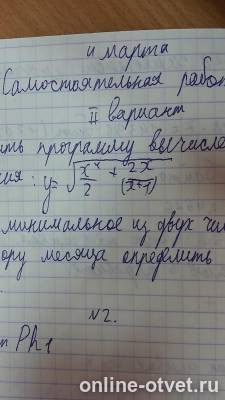 4 марта
Самостоятельная рабо
II вариант
ть программу вычисле
ия: y = √(x⁴/2 + 2x/(x+1))
минимальное из двух чи
ору месяца определить
N2.
Ph1
online-otvet.ru